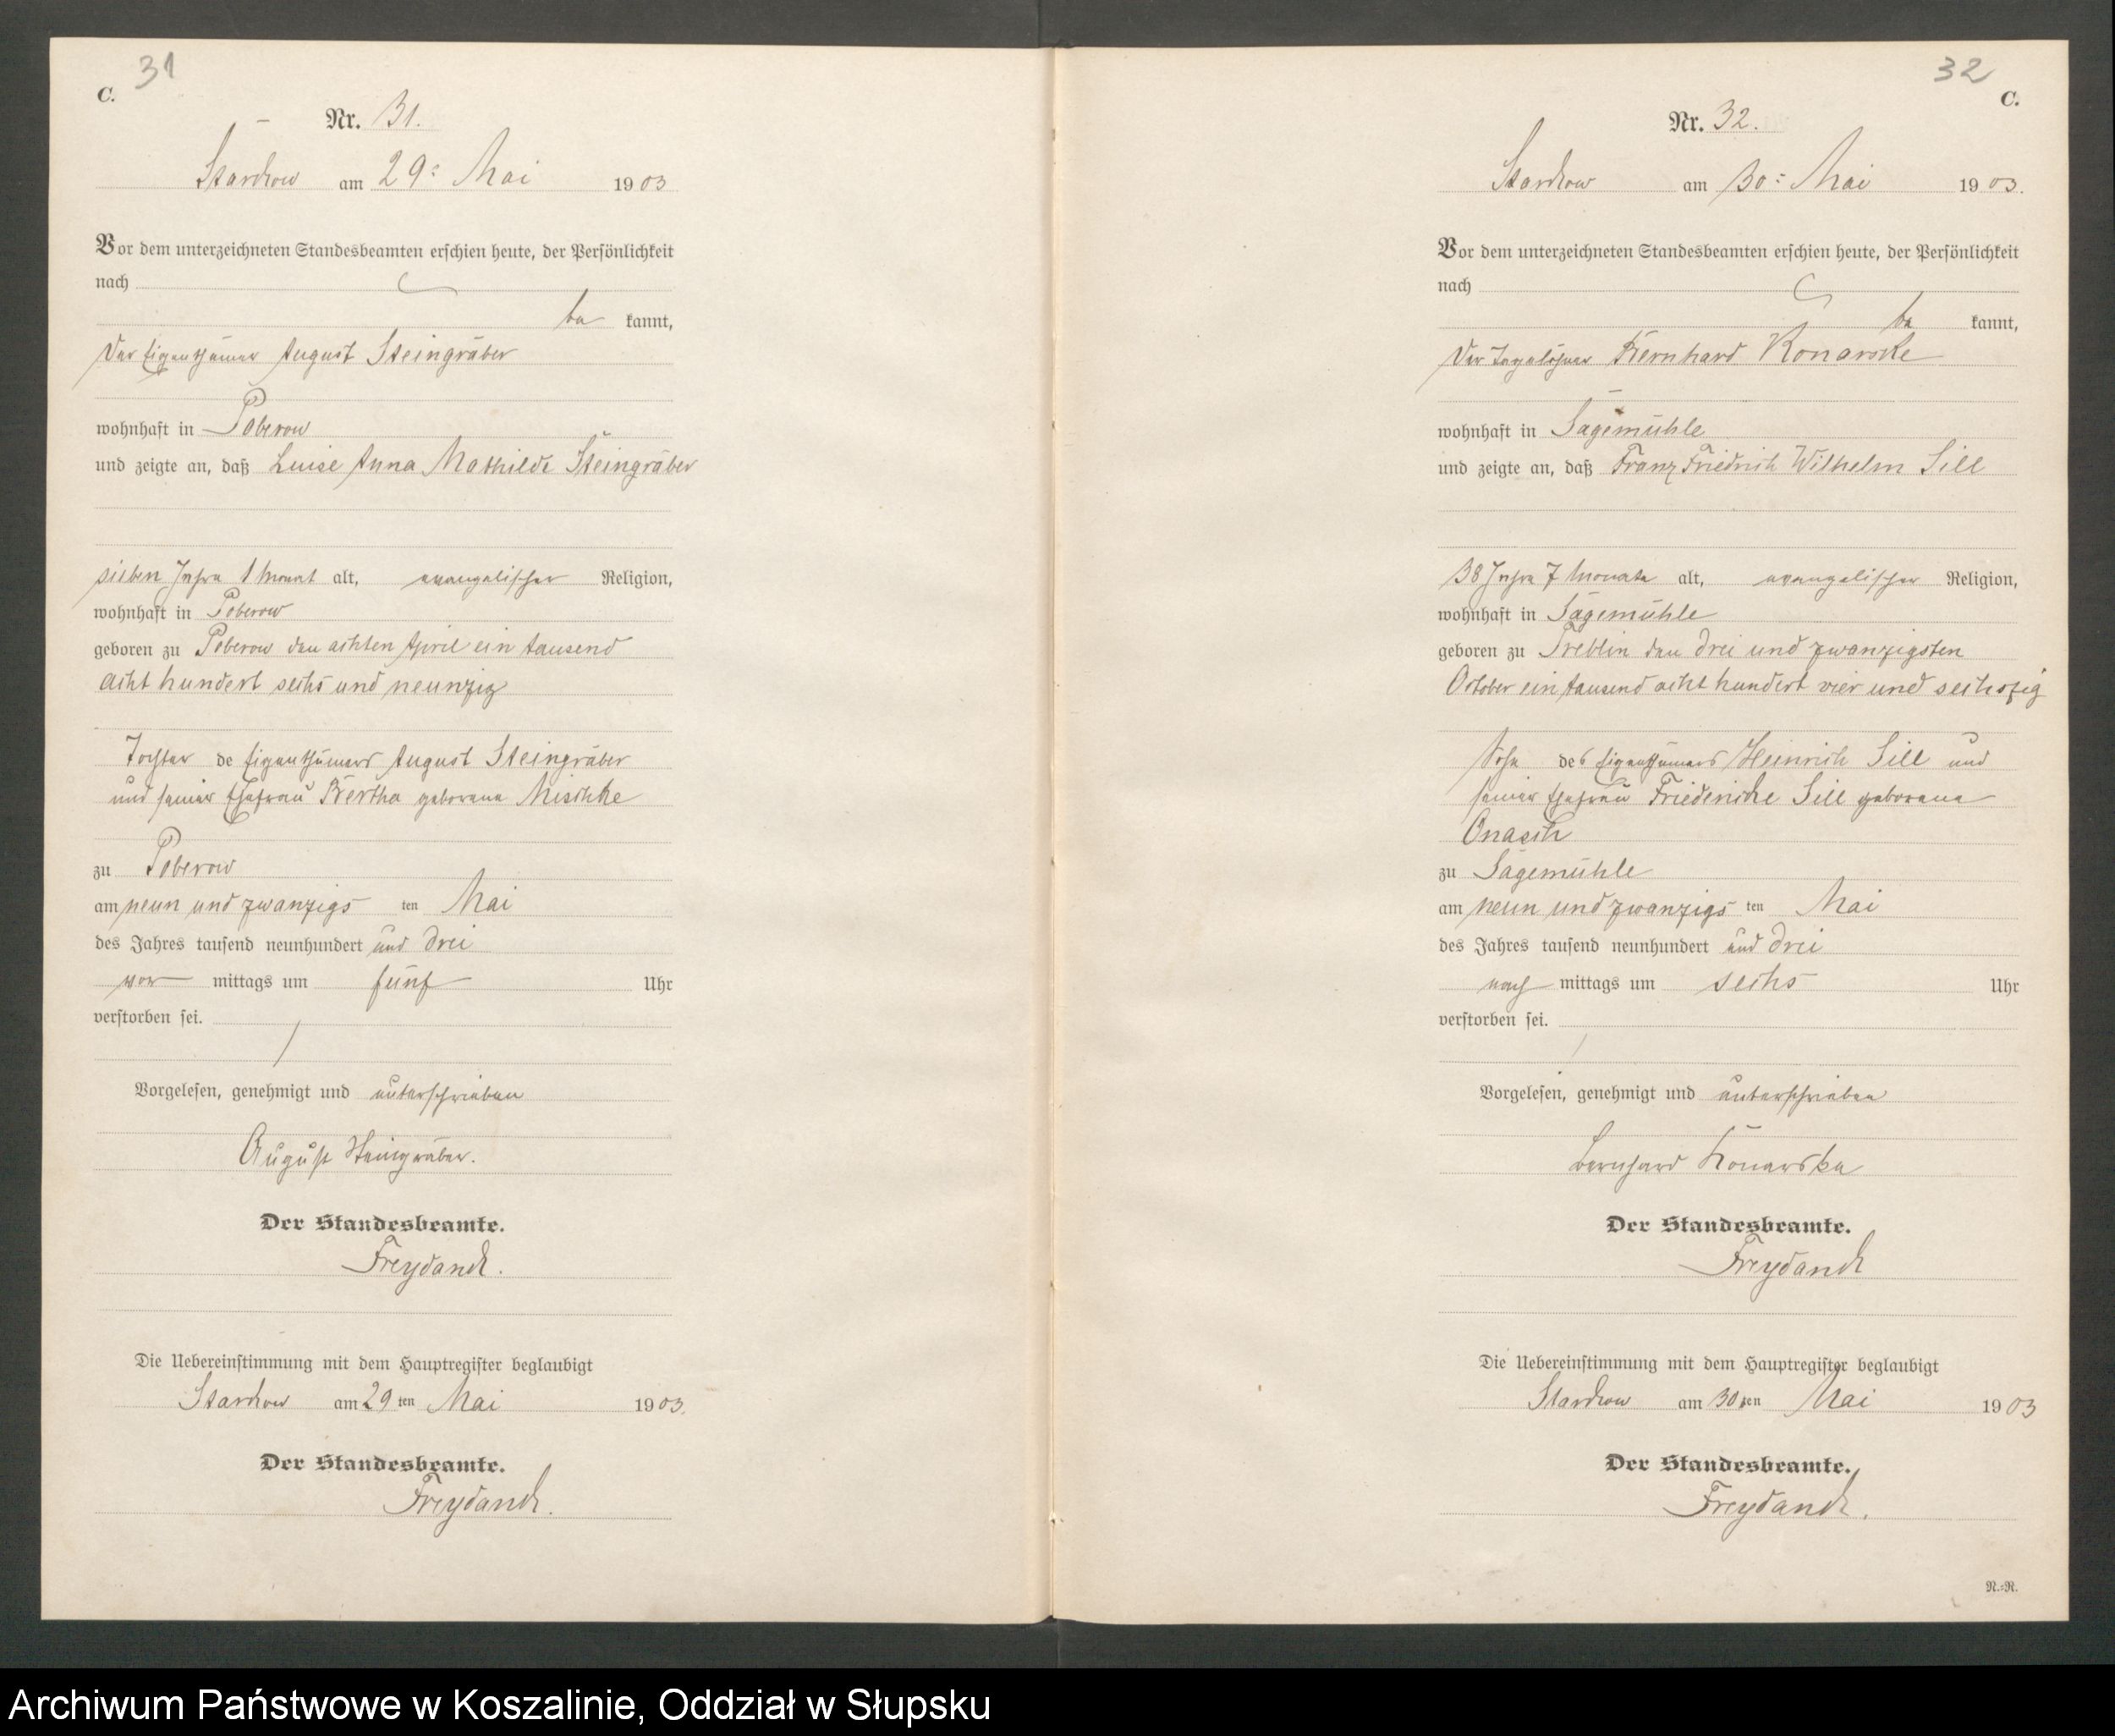 31
C.
Nr. 31.
Starkow am 29ᵗ Mai 1903
Vor dem unterzeichneten Standesbeamten erschien heute, der Persönlichkeit
nach
be kannt,
Der Eigenthümer August Steingräber
wohnhaft in Poberow
und zeigte an, daß Luise Anna Mathilde Steingräber
sieben Jahre 1 Monat alt, evangelischer Religion,
wohnhaft in Poberow
geboren zu Poberow den achten April ein tausend
acht hundert sechs und neunzig
Tochter de Eigenthümers August Steingräber
und seiner Ehefrau Bertha geborene Mischke
zu Poberow
am neun und zwanzigs ten Mai
des Jahres tausend neunhundert und drei
vor mittags um fünf Uhr
verstorben sei.
Vorgelesen, genehmigt und unterschrieben
August Steingräber.
Der Standesbeamte.
Freydanck.
Die Uebereinstimmung mit dem Hauptregister beglaubigt
Starkow am 29 ten Mai 1903.
Der Standesbeamte.
Freydanck.
32
C.
Nr. 32.
Starkow am 30ᵗ Mai 1903.
Vor dem unterzeichneten Standesbeamten erschien heute, der Persönlichkeit
nach
be kannt,
Der Tagelöhner Bernhard Konarske
wohnhaft in Sägemühle
und zeigte an, daß Franz Friedrich Wilhelm Sill
38 Jahre 7 Monate alt, evangelischer Religion,
wohnhaft in Sägemühle
geboren zu Treblin den drei und zwanzigsten
October ein tausend acht hundert vier und sechszig
Sohn des Eigenthümers Heinrich Sill und
seiner Ehefrau Friedericke Sill geborene
Onasch
zu Sägemühle
am neun und zwanzigs ten Mai
des Jahres tausend neunhundert und drei
nach mittags um sechs Uhr
verstorben sei.
Vorgelesen, genehmigt und unterschrieben
Bernhard Konarske
Der Standesbeamte.
Freydanck
Die Uebereinstimmung mit dem Hauptregister beglaubigt
Starkow am 30 ten Mai 1903
Der Standesbeamte.
Freydanck.
N.-N.
Archiwum Państwowe w Koszalinie, Oddział w Słupsku